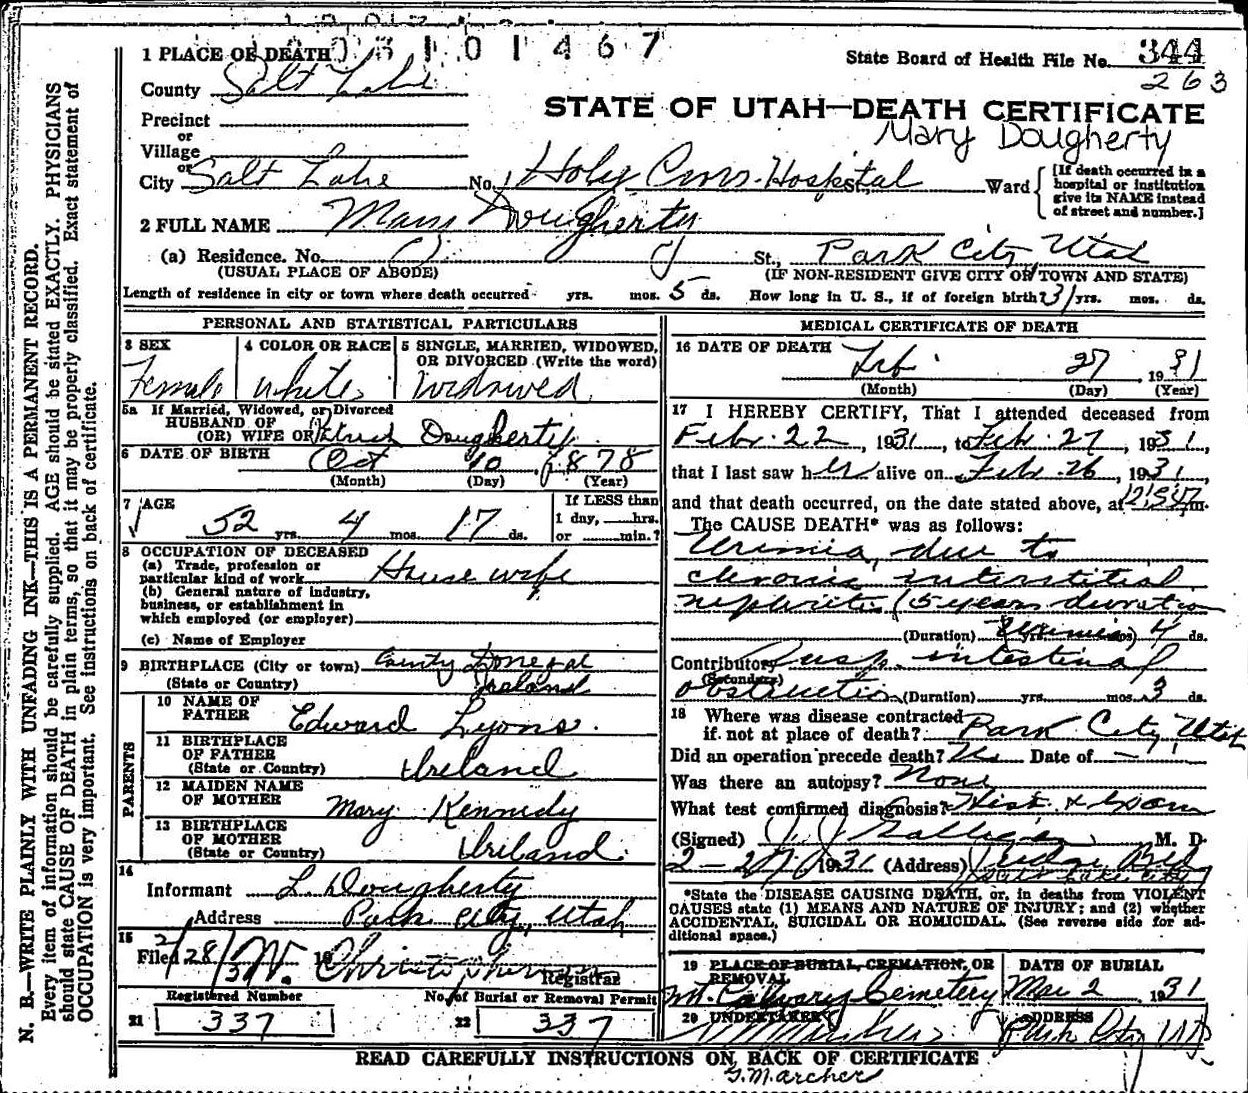 1 0 3 1 0 1 4 6 7
1 PLACE OF DEATH
State Board of Health File No. 344
263
County Salt Lake
STATE OF UTAH—DEATH CERTIFICATE
Mary Dougherty
Precinct
or
Village
or
City Salt Lake No. Holy Cross Hospital St., Ward
[If death occurred in a hospital or institution give its NAME instead of street and number.]
2 FULL NAME Mary Dougherty
(a) Residence. No. St., Park City, Utah
(USUAL PLACE OF ABODE) (IF NON-RESIDENT GIVE CITY OR TOWN AND STATE)
Length of residence in city or town where death occurred yrs. mos. 5 ds. How long in U. S., if of foreign birth? 31 yrs. mos. ds.
PERSONAL AND STATISTICAL PARTICULARS
3 SEX
Female
4 COLOR OR RACE
White
5 SINGLE, MARRIED, WIDOWED, OR DIVORCED (Write the word)
Widowed
5a If Married, Widowed, or Divorced
HUSBAND OF
(OR) WIFE OF Dougherty
6 DATE OF BIRTH Oct 10, 1878
(Month) (Day) (Year)
7 AGE
52 yrs. 4 mos. 17 ds.
If LESS than
1 day, hrs.
or min.?
8 OCCUPATION OF DECEASED
(a) Trade, profession or
particular kind of work House wife
(b) General nature of industry,
business, or establishment in
which employed (or employer)
(c) Name of Employer
9 BIRTHPLACE (City or town) County Donegal
(State or Country) Ireland
PARENTS
10 NAME OF
FATHER Edward Lyons.
11 BIRTHPLACE
OF FATHER
(State or Country) Ireland
12 MAIDEN NAME
OF MOTHER Mary Kennedy
13 BIRTHPLACE
OF MOTHER
(State or Country) Ireland.
14
Informant L. Dougherty
Address Park City, Utah
15
Filed 2/28/31 19
Registrar
Registered Number
21 337
No. of Burial or Removal Permit
22 337
MEDICAL CERTIFICATE OF DEATH
16 DATE OF DEATH Feb. 27, 1931
(Month) (Day) (Year)
17 I HEREBY CERTIFY, That I attended deceased from
Feb. 22, 1931, to Feb. 27, 1931,
that I last saw her alive on Feb. 26, 1931,
and that death occurred, on the date stated above, at m.
The CAUSE DEATH* was as follows:
Uremia, due to
chronic interstitial
nephritis (5 years duration
(Duration) yrs. mos. 4 ds.
Contributory Susp. intestinal
(Secondary)
obstruction (Duration) yrs. mos. 3 ds.
18 Where was disease contracted
if not at place of death? Park City, Utah
Did an operation precede death? No Date of —
Was there an autopsy? None
What test confirmed diagnosis? Hist. & Exam
(Signed) J. J. Galligan M. D.
2-27, 1931 (Address) Judge Bld
Salt Lake City
*State the DISEASE CAUSING DEATH, or, in deaths from VIOLENT
CAUSES state (1) MEANS AND NATURE OF INJURY; and (2) whether
ACCIDENTAL, SUICIDAL OR HOMICIDAL. (See reverse side for ad-
ditional space.)
19 PLACE OF BURIAL, CREMATION, OR
REMOVAL
Mt. Calvary Cemetery
DATE OF BURIAL
Mar 2 1931
20 UNDERTAKER
G. M. Archer
ADDRESS
Park City Ut
READ CAREFULLY INSTRUCTIONS ON BACK OF CERTIFICATE
G. M. archer
N. B.—WRITE PLAINLY WITH UNFADING INK—THIS IS A PERMANENT RECORD.
Every item of information should be carefully supplied. AGE should be stated EXACTLY. PHYSICIANS
should state CAUSE OF DEATH in plain terms, so that it may be properly classified. Exact statement of
OCCUPATION is very important. See instructions on back of certificate.